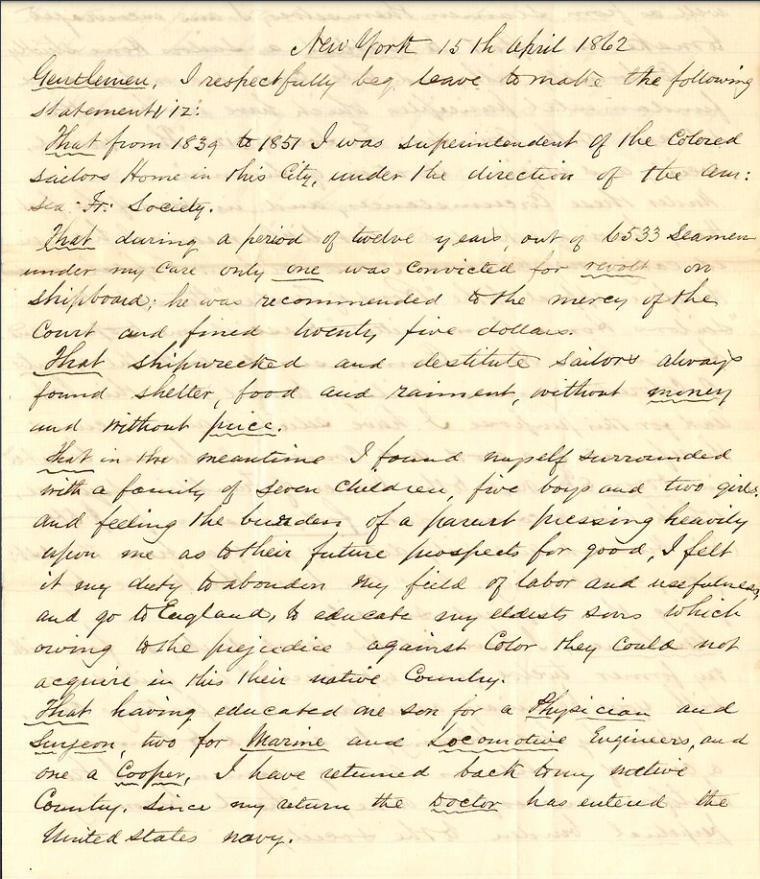 New York 15th April 1862
Gentlemen, I respectfully beg leave to make the following
statement viz:
That from 1839 to 1851 I was superintendent of the Colored
Sailors Home in this City, under the direction of the Am:
Sea: Fr: Society.
That during a period of twelve years, out of 6533 Seamen
under my care only one was convicted for revolt on
shipboard; he was recommended to the mercy of the
Court and fined twenty five dollars.
That shipwrecked and destitute sailors always
found shelter, food and raiment, without money
and without price.
That in the meantime I found myself surrounded
with a family of seven children, five boys and two girls,
and feeling the burden of a parent pressing heavily
upon me as to their future prospects for good, I felt
it my duty to abandon my field of labor and usefulness,
and go to England, to educate my eldests sons which
owing to the prejudice against Color they could not
acquire in this their native Country.
That having educated one son for a Physician and
Surgeon, two for Marine and Locomotive Engineers, and
one a Cooper, I have returned back to my native
Country. Since my return the Doctor has entered the
United States navy.